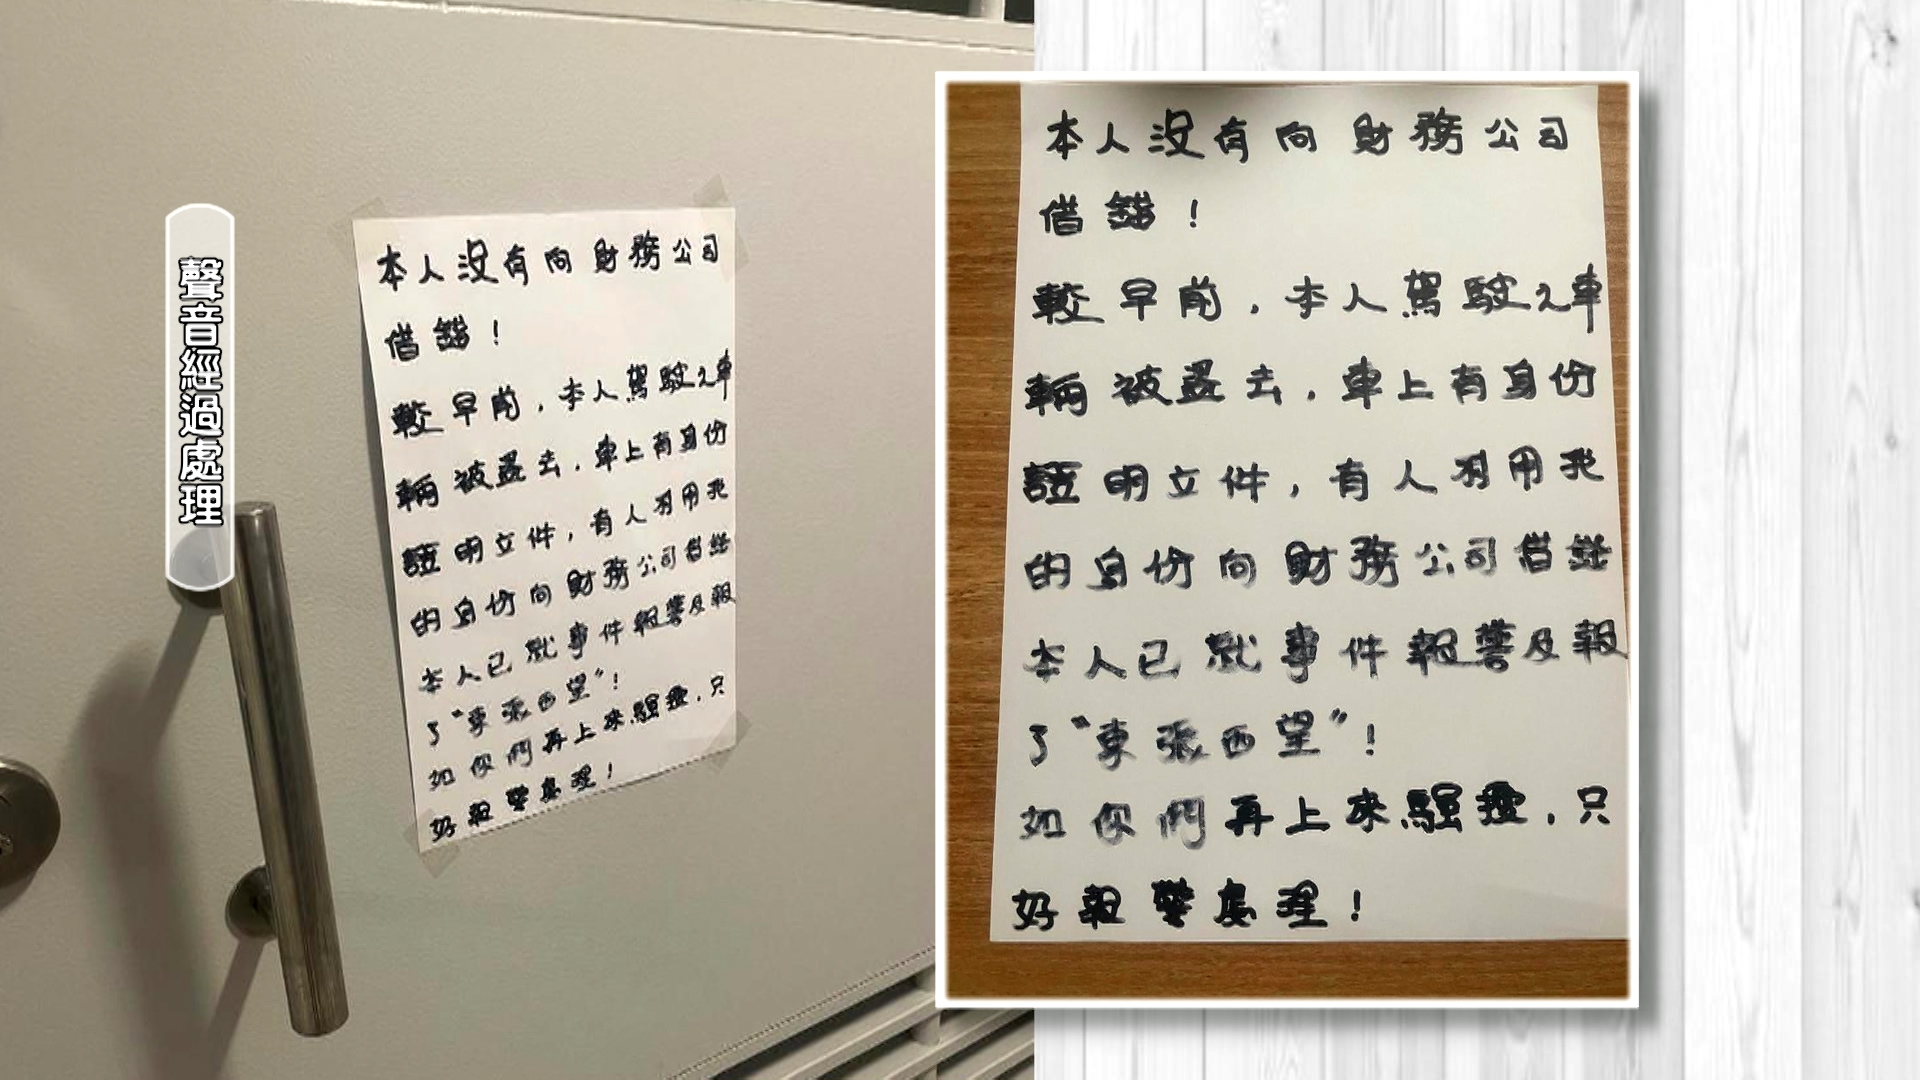 聲音經過處理
本人沒有向財務公司
借錢！
較早前，本人駕駛之車
輛被盜去，車上有身份
證明文件，有人利用我
的身份向財務公司借錢
本人已就事件報警及報
了“東張西望”！
如你們再上來騷擾，只
好報警處理！
本人沒有向財務公司
借錢！
較早前，本人駕駛之車
輛被盜去，車上有身份
證明文件，有人利用我
的身份向財務公司借錢
本人已就事件報警及報
了“東張西望”！
如你們再上來騷擾，只
好報警處理！